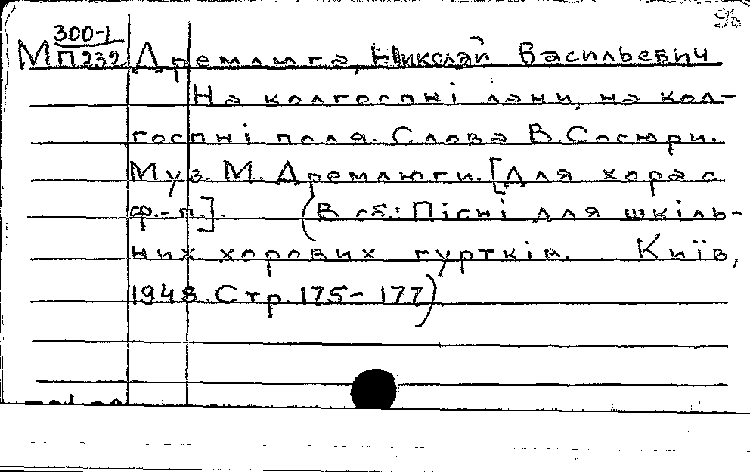 300-1
М П239 Дремлюга, Николай Васильевич
На колгоспні лани, на кол-
госпні поля. Слова В. Сосюри.
Муз. М. Дремлюги. [Для хора с
ф.-п.]. (В сб.: Пісні для шкіль-
них хорових гуртків. Київ,
1948. Стр. 175-177)